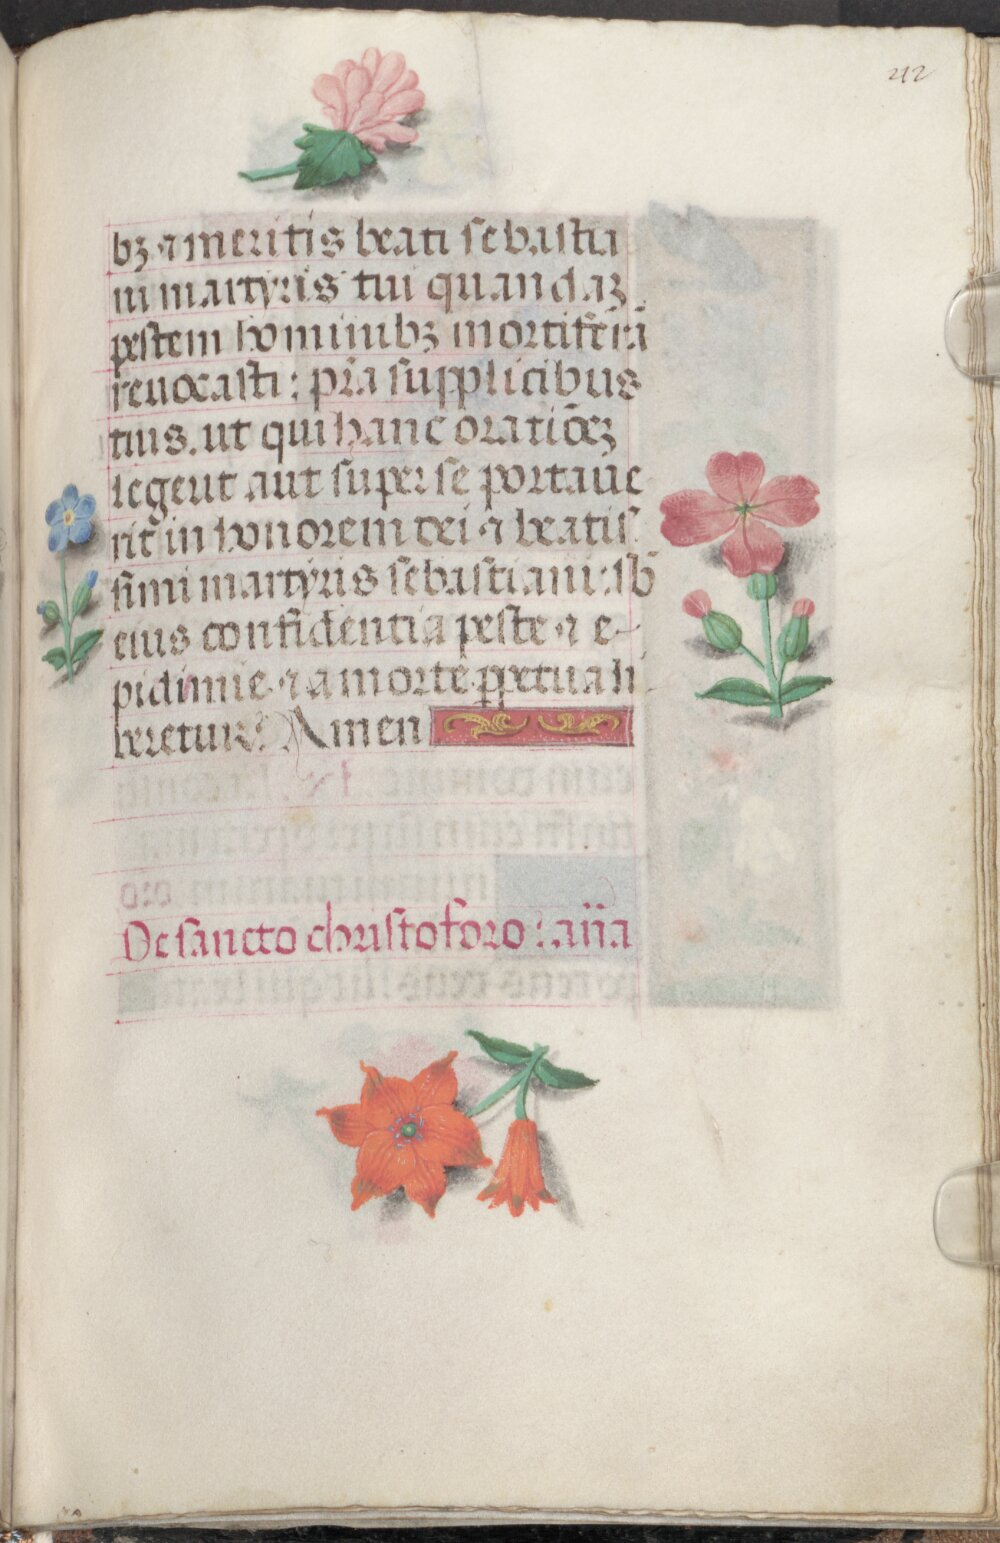 212
bʒ ⁊ meritis beati sebastia
ni martyris tui quandaʒ
pestem hominibʒ mortiferā
reuocasti : p̄ra supplicibus
tuis. ut qui hanc oratiōeʒ
legeut aut super se portaue
rit̄ in honorem dei ⁊ beatis
simi martyris sebastiani: sb̄
eius confidentia peste ⁊ e-
pidimie ⁊ a morte ꝑpetua li
beretur. Amen
De sancto christoforo : an̄a